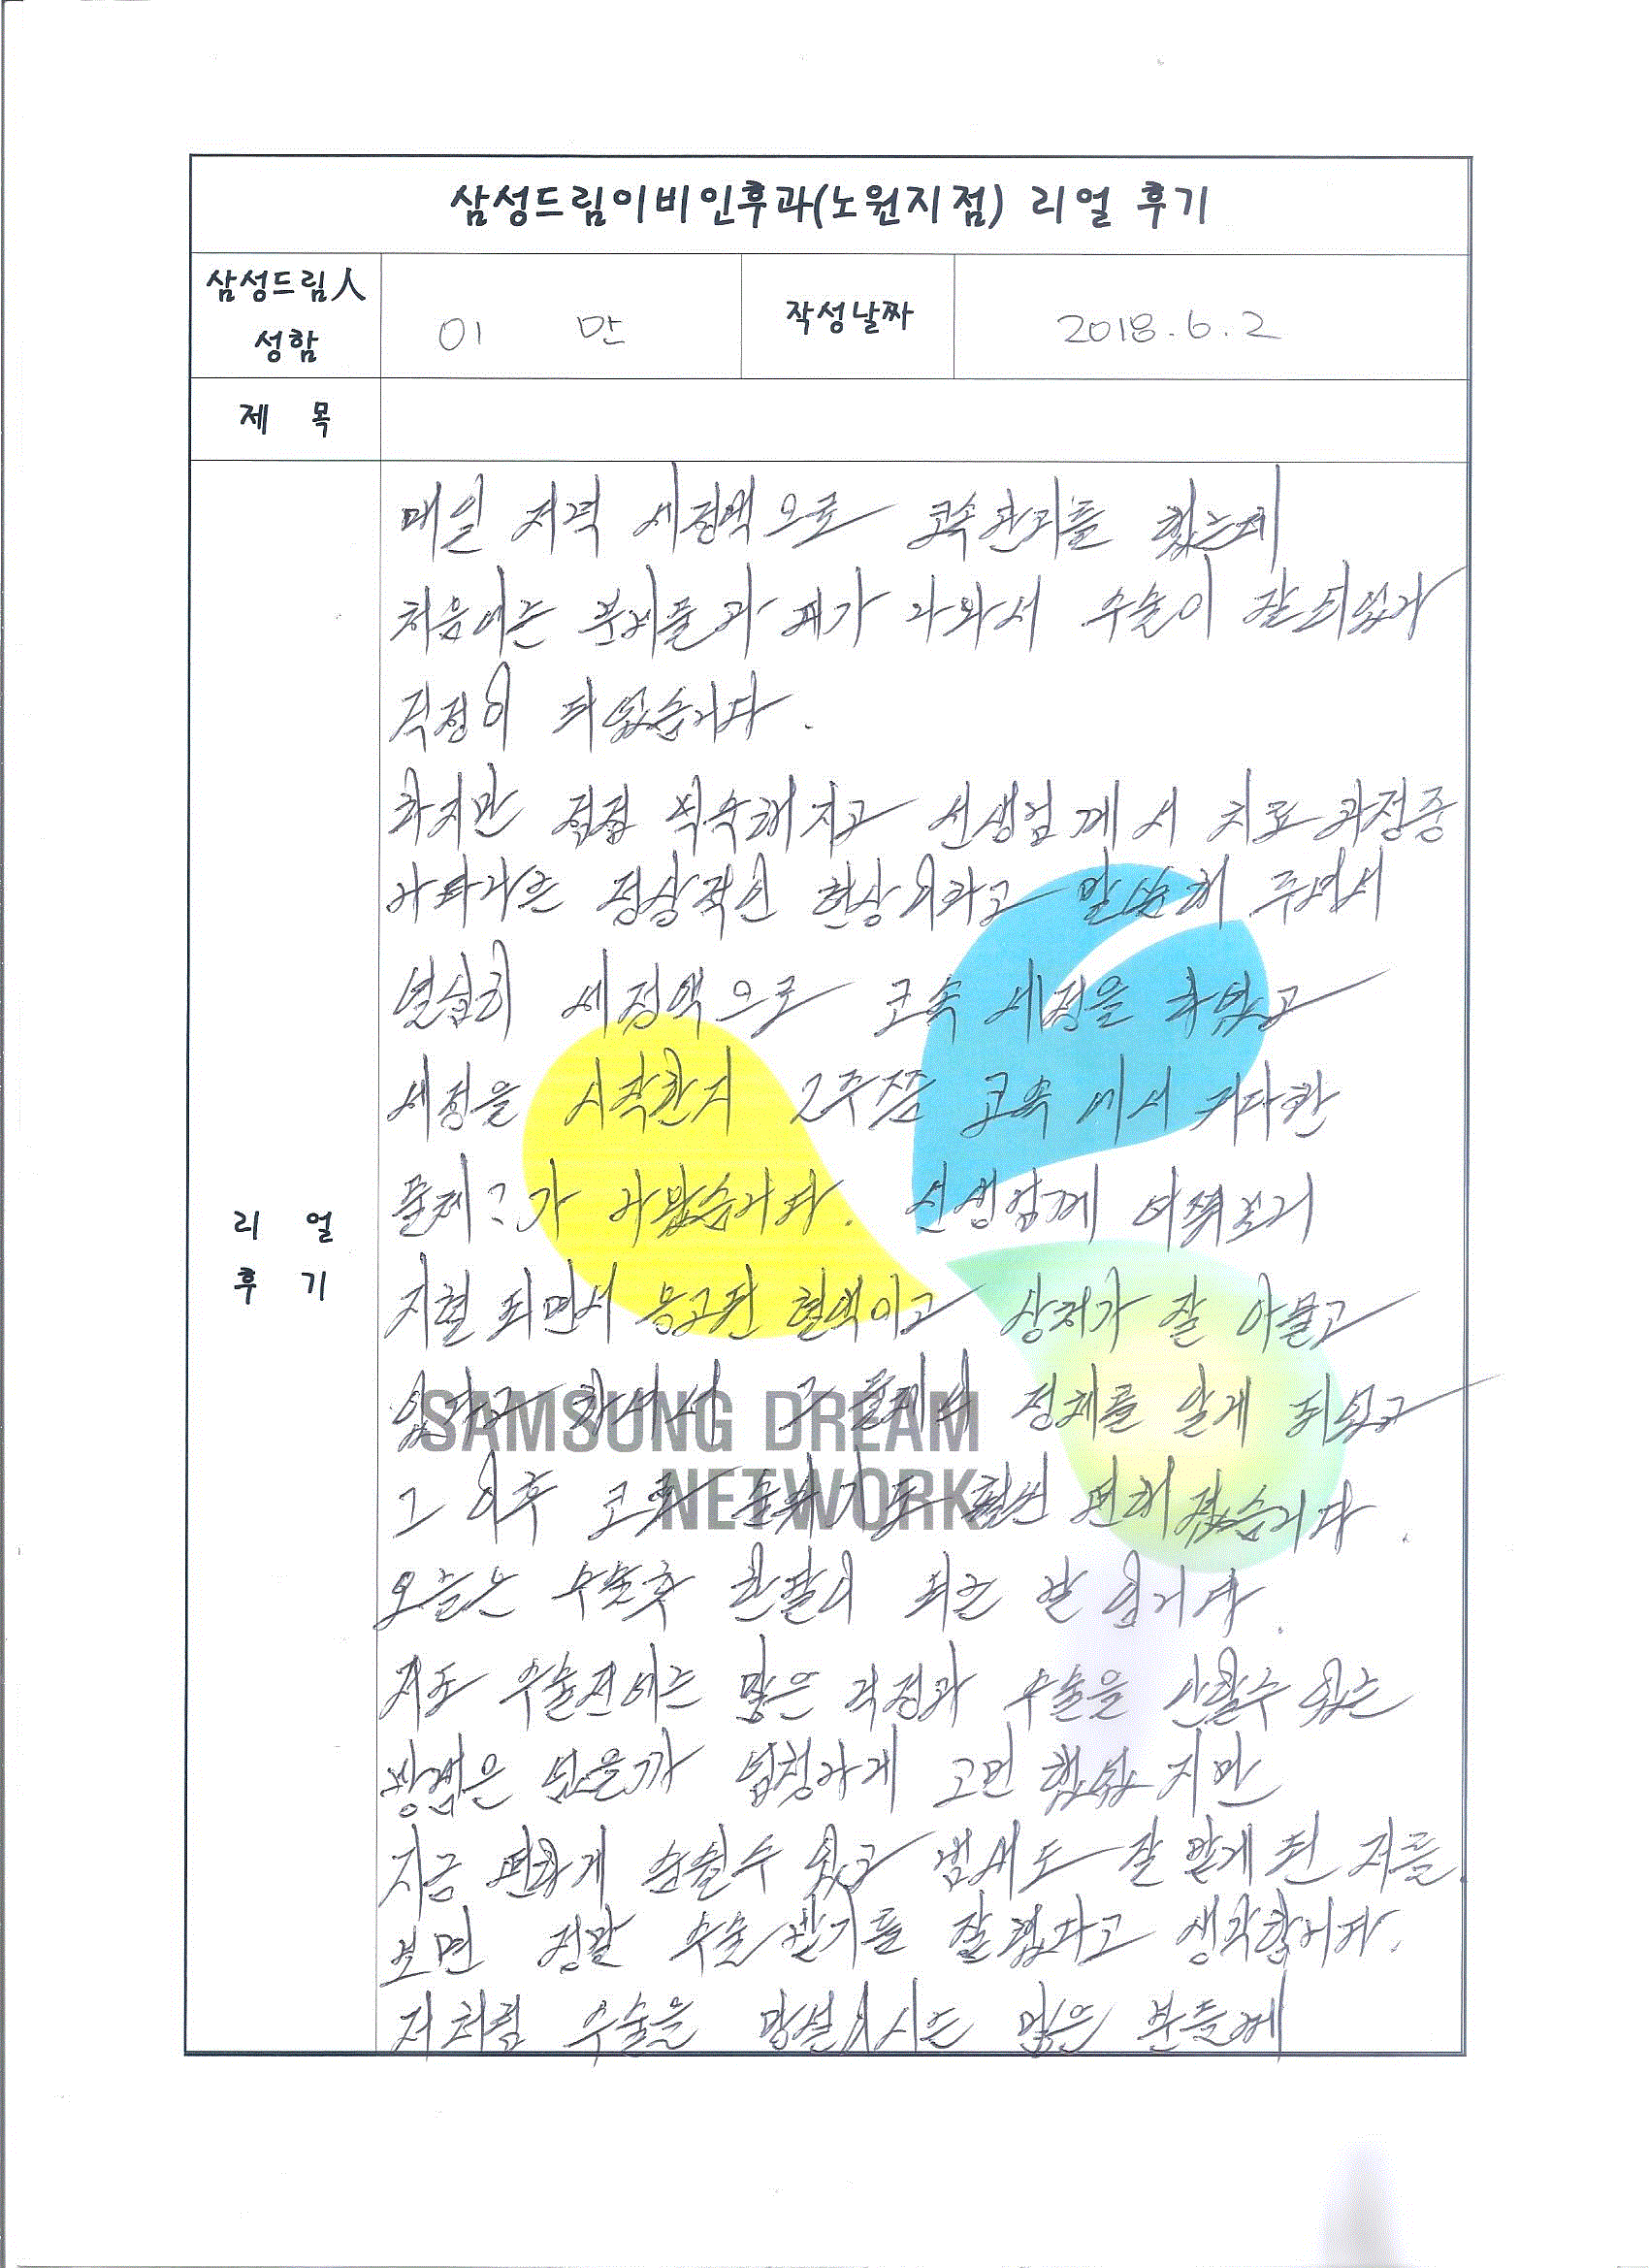 삼성드림이비인후과(노원지점) 리얼 후기
삼성드림人
성함
이 만
작성날짜
2018.6.2
제 목
리 얼
후 기
매일 저녁 세정액으로 콧속관리를 했는데
처음에는 분비물과 피가 나와서 수술이 잘되었나
걱정이 되었습니다.
하지만 점점 익숙해지고 선생님께서 치료과정중
나타나는 정상적인 현상이라고 말씀해 주면서
열심히 세정액으로 코속 세정을 하였고
세정을 시작한지 2주쯤 코속에서 커다란
물체?가 나왔습니다. 선생님께 여쭤보니
지혈 되면서 응고된 혈액이고 상처가 잘 아물고
있다고 하셔서 그 물체의 정체를 알게 되었고
그 이후 코로 숨쉬기도 훨씬 편해졌습니다.
오늘은 수술후 한달이 되는 날 입니다.
저도 수술전에는 많은 걱정과 수술을 안할수 있는
방법은 없을까 엄청나게 고민 했었지만
지금 편하게 숨쉴수 있고 냄새도 잘 맡게 된 저를
보면 정말 수술받기를 잘했다고 생각합니다.
저처럼 수술을 망설이시는 많은 분들께
SAMSUNG DREAM
NETWORK